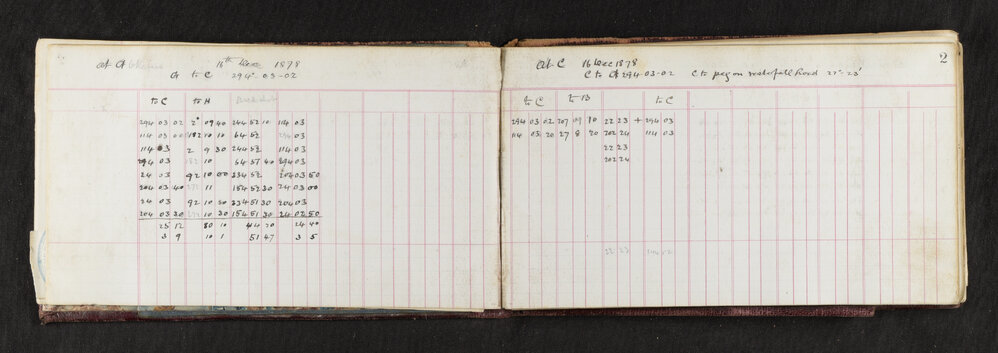 at A
16th Dec 1878
A to C 294° 03-02
to C to H
294 03 02 2° 09 40 244 52 10 114 03
114 03 00 182 10 10 64 52 294 03
114 03 2 9 30 244 52 114 03
294 03 182 10 64 51 40 294 03
24 03 92 10 00 334 52 204 03 50
204 03 40 272 11 154 52 30 24 03 00
24 03 92 10 30 334 51 30 204 03
204 03 30 272 10 30 154 51 30 24 02 50
25 12 80 10 44 20 24 40
3 9 10 1 51 47 3 5
2
At C 16 Dec 1878
C to A 294 03-02 C to peg on west of all Road 22°-23'
to C to B to C
294 03 02 207 09 10 22 23 + 294 03
114 03 20 27 8 20 202 24 114 03
22 23
202 24
22 23